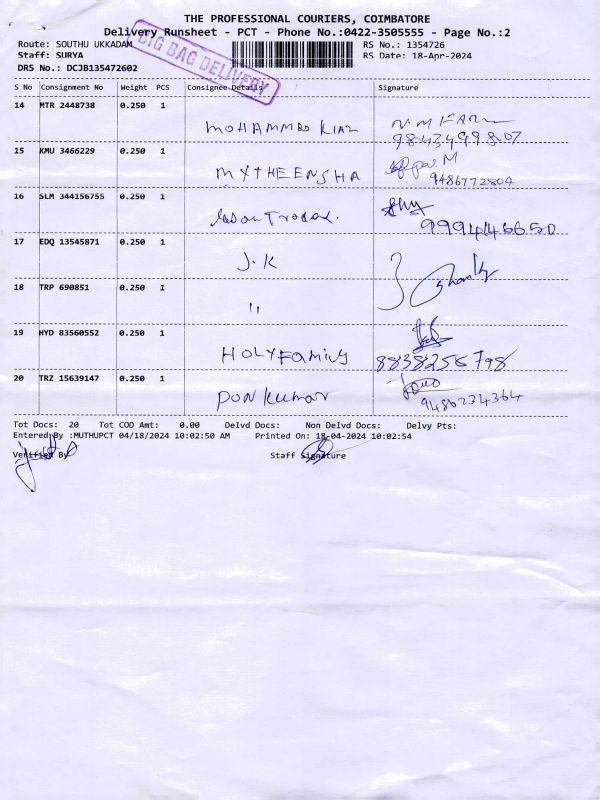 THE PROFESSIONAL COURIERS, COIMBATORE
Delivery Runsheet - PCT - Phone No.:0422-3505555 - Page No.:2
Route: SOUTHU UKKADAM
RS No.: 1354726
Staff: SURYA
RS Date: 18-Apr-2024
DRS No.: DCJB135472602
BIG BAG DELIVERY
S No Consignment No Weight PCS Consignee Details Signature
14 MTR 2448738 0.250 1
MOHAMMED
15 KMU 3466229 0.250 1
MYTHEENSHA
9486772804
16 SLM 344156755 0.250 1
17 EDQ 13545871 0.250 1
J.K
18 TRP 690851 0.250 1
"
19 HYD 83560552 0.250 1
HOLYFAMILY 8838256798
20 TRZ 15639147 0.250 1
PON Kumar
9486234364
Tot Docs: 20 Tot COD Amt: 0.00 Delvd Docs: Non Delvd Docs: Delvy Pts:
Entered By :MUTHUPCT 04/18/2024 10:02:50 AM Printed On: 18-04-2024 10:02:54
Verified By Staff Signature